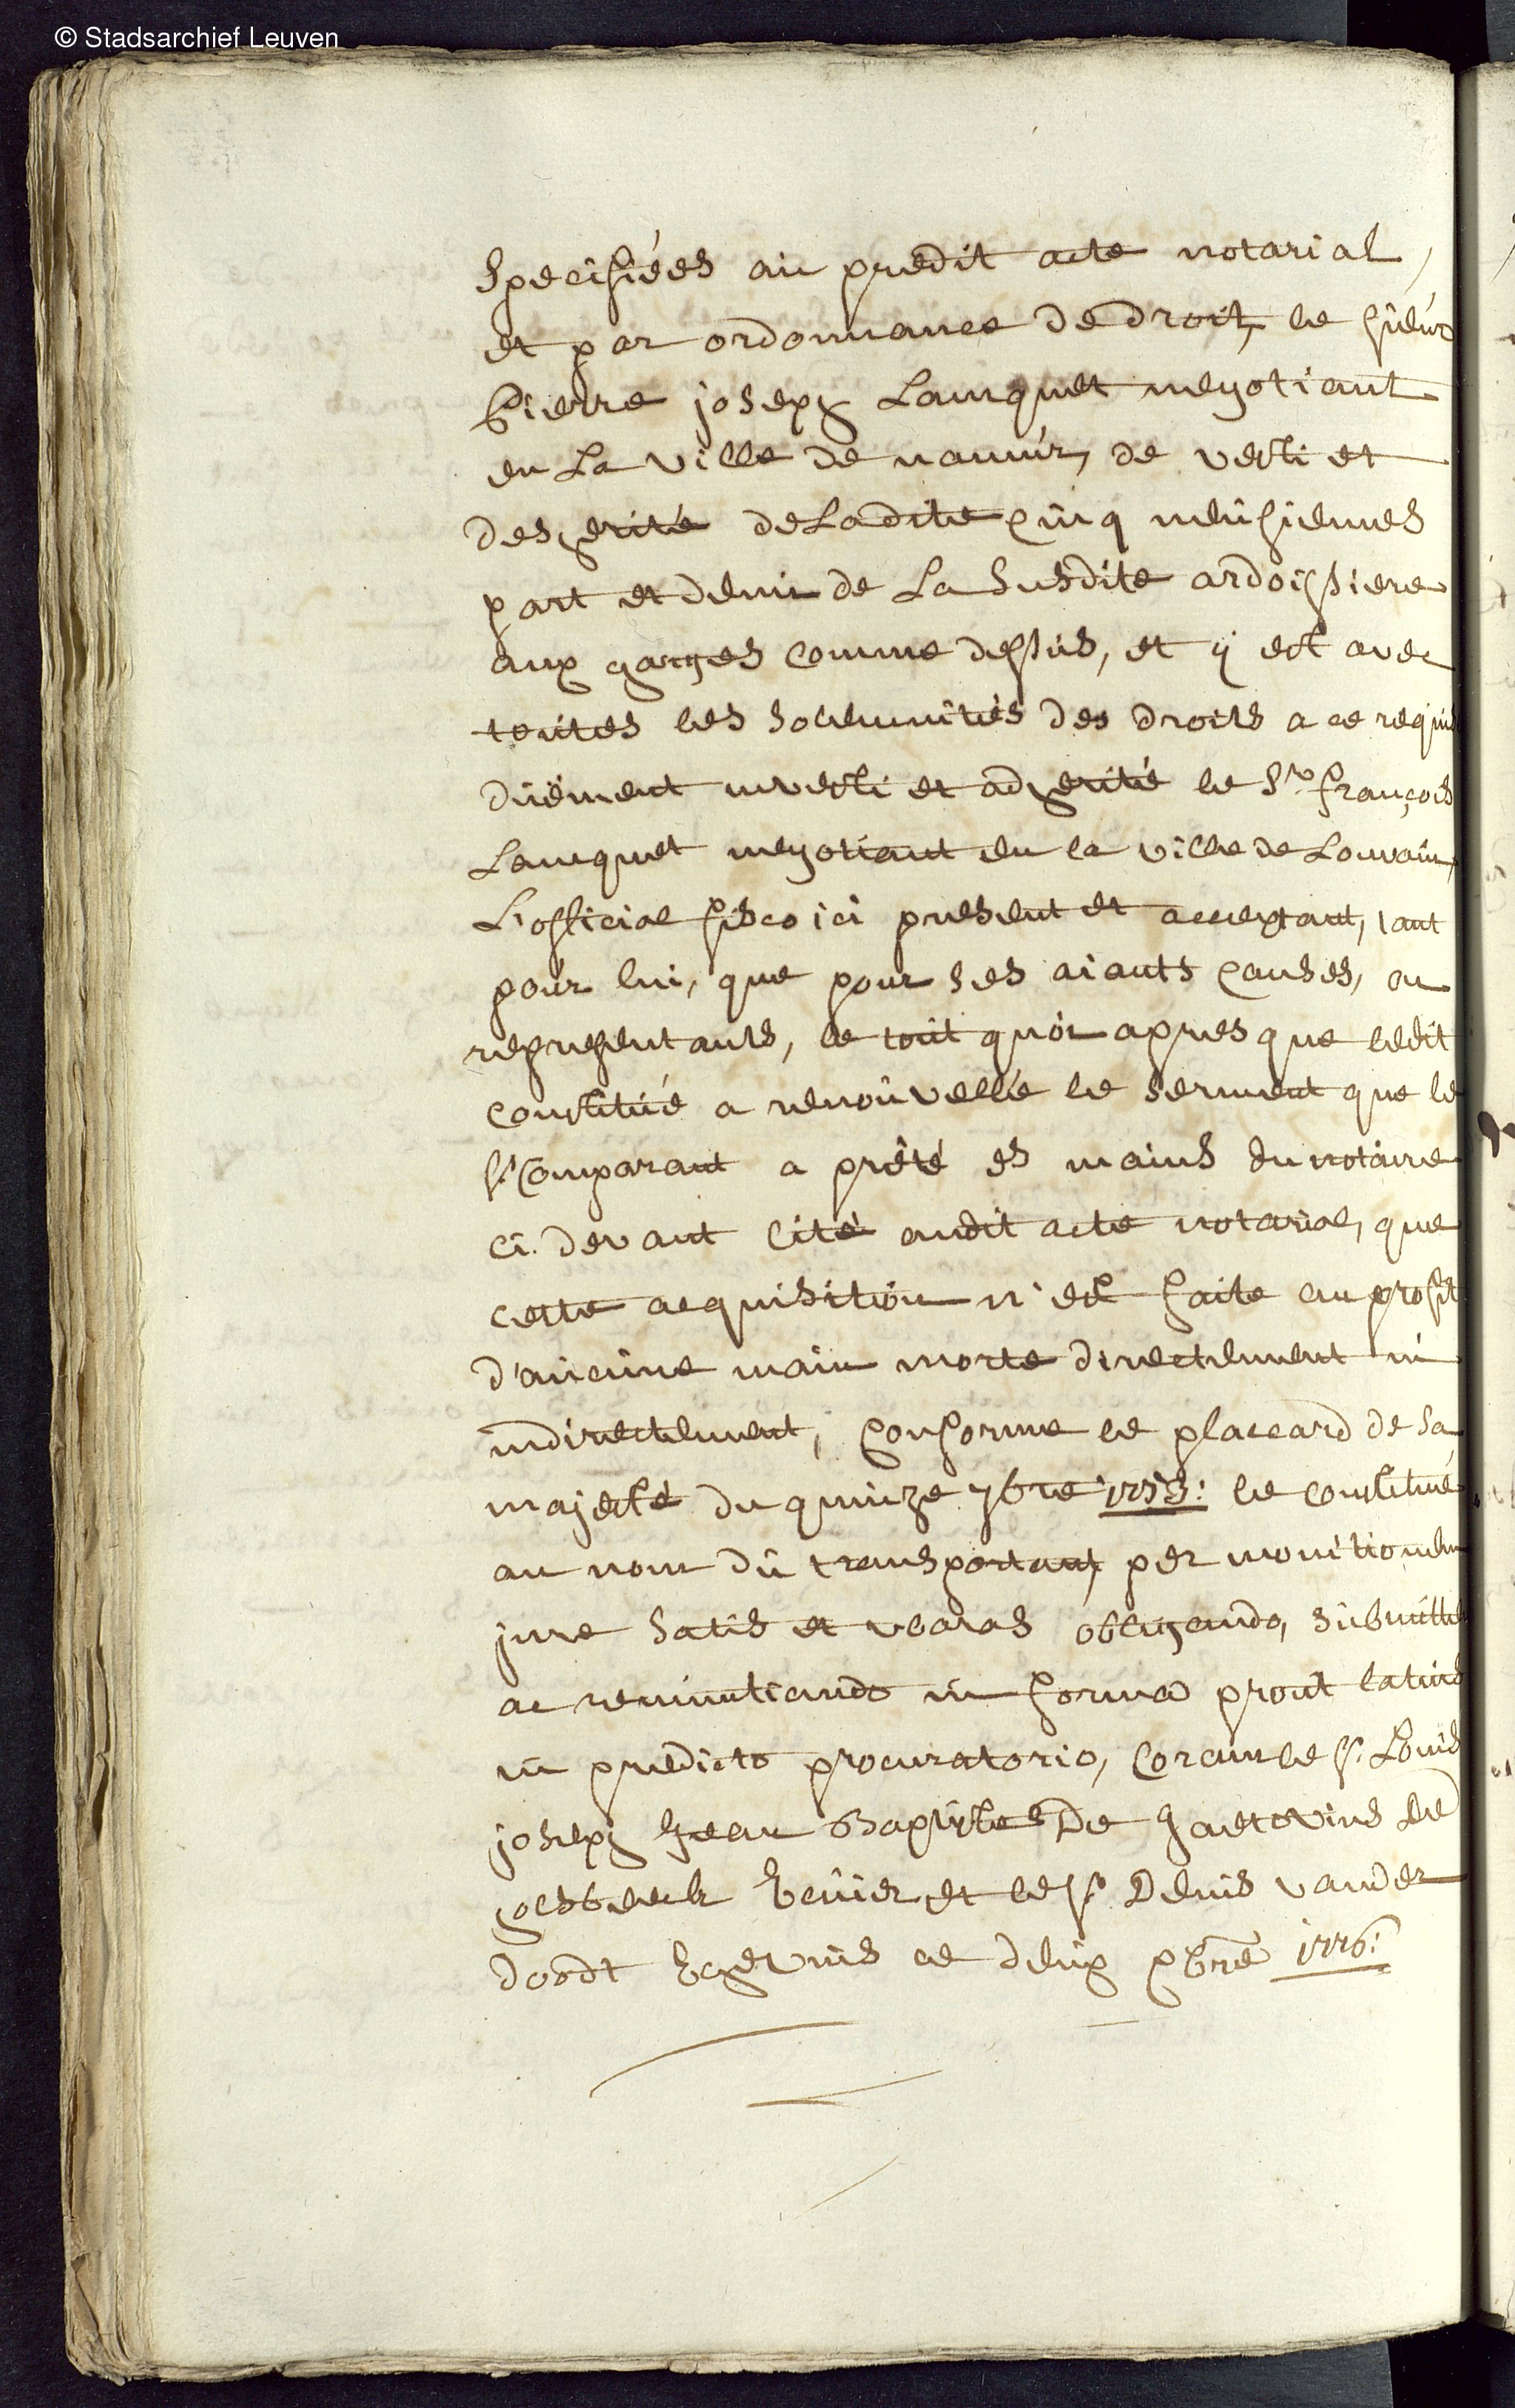 © Stadsarchief Leuven
specifiées au predit acte notarial,
et par ordonnance de droit, le sieur
Pierre joseph Lamquet negotiant
en La ville de namur, de vesti et
desherité de Ladite cinq neufiemes
part et demi de La susdite ardoisiere
aux charges comme dessus, et ÿ est avec
toutes les sollemnités des droits a ce requis
düement investi et adherité le Sr. françois
Lamquet negotiant en la ville de Louvain,
L'official fisco ici present et acceptant, tant
pour lui, que pour ses aiants causes, ou
representants, le tout quoi apres que ledit
constitué a renouvellé le serment que le
sr. Comparant a prêté es mains du notaire
ci. devant cité audit acte notarial, que
cette acquisition n'est faite au profit
d'aucune main morte directement ni
indirectement, conforme le placcard de sa
majesté du quinze 7bre 1753: le constitué
au nom du transportant, per monitionem
jure satis et waras obligando, submittendo
ac renuntiando in forma prout latius
in predicto procuratorio, coram le sr. Louis
joseph Jean Baptiste De hertovius De
holsbeeck Ecüier et le sr. Denis vander
doodt Echevins ce deux 9bre 1776: